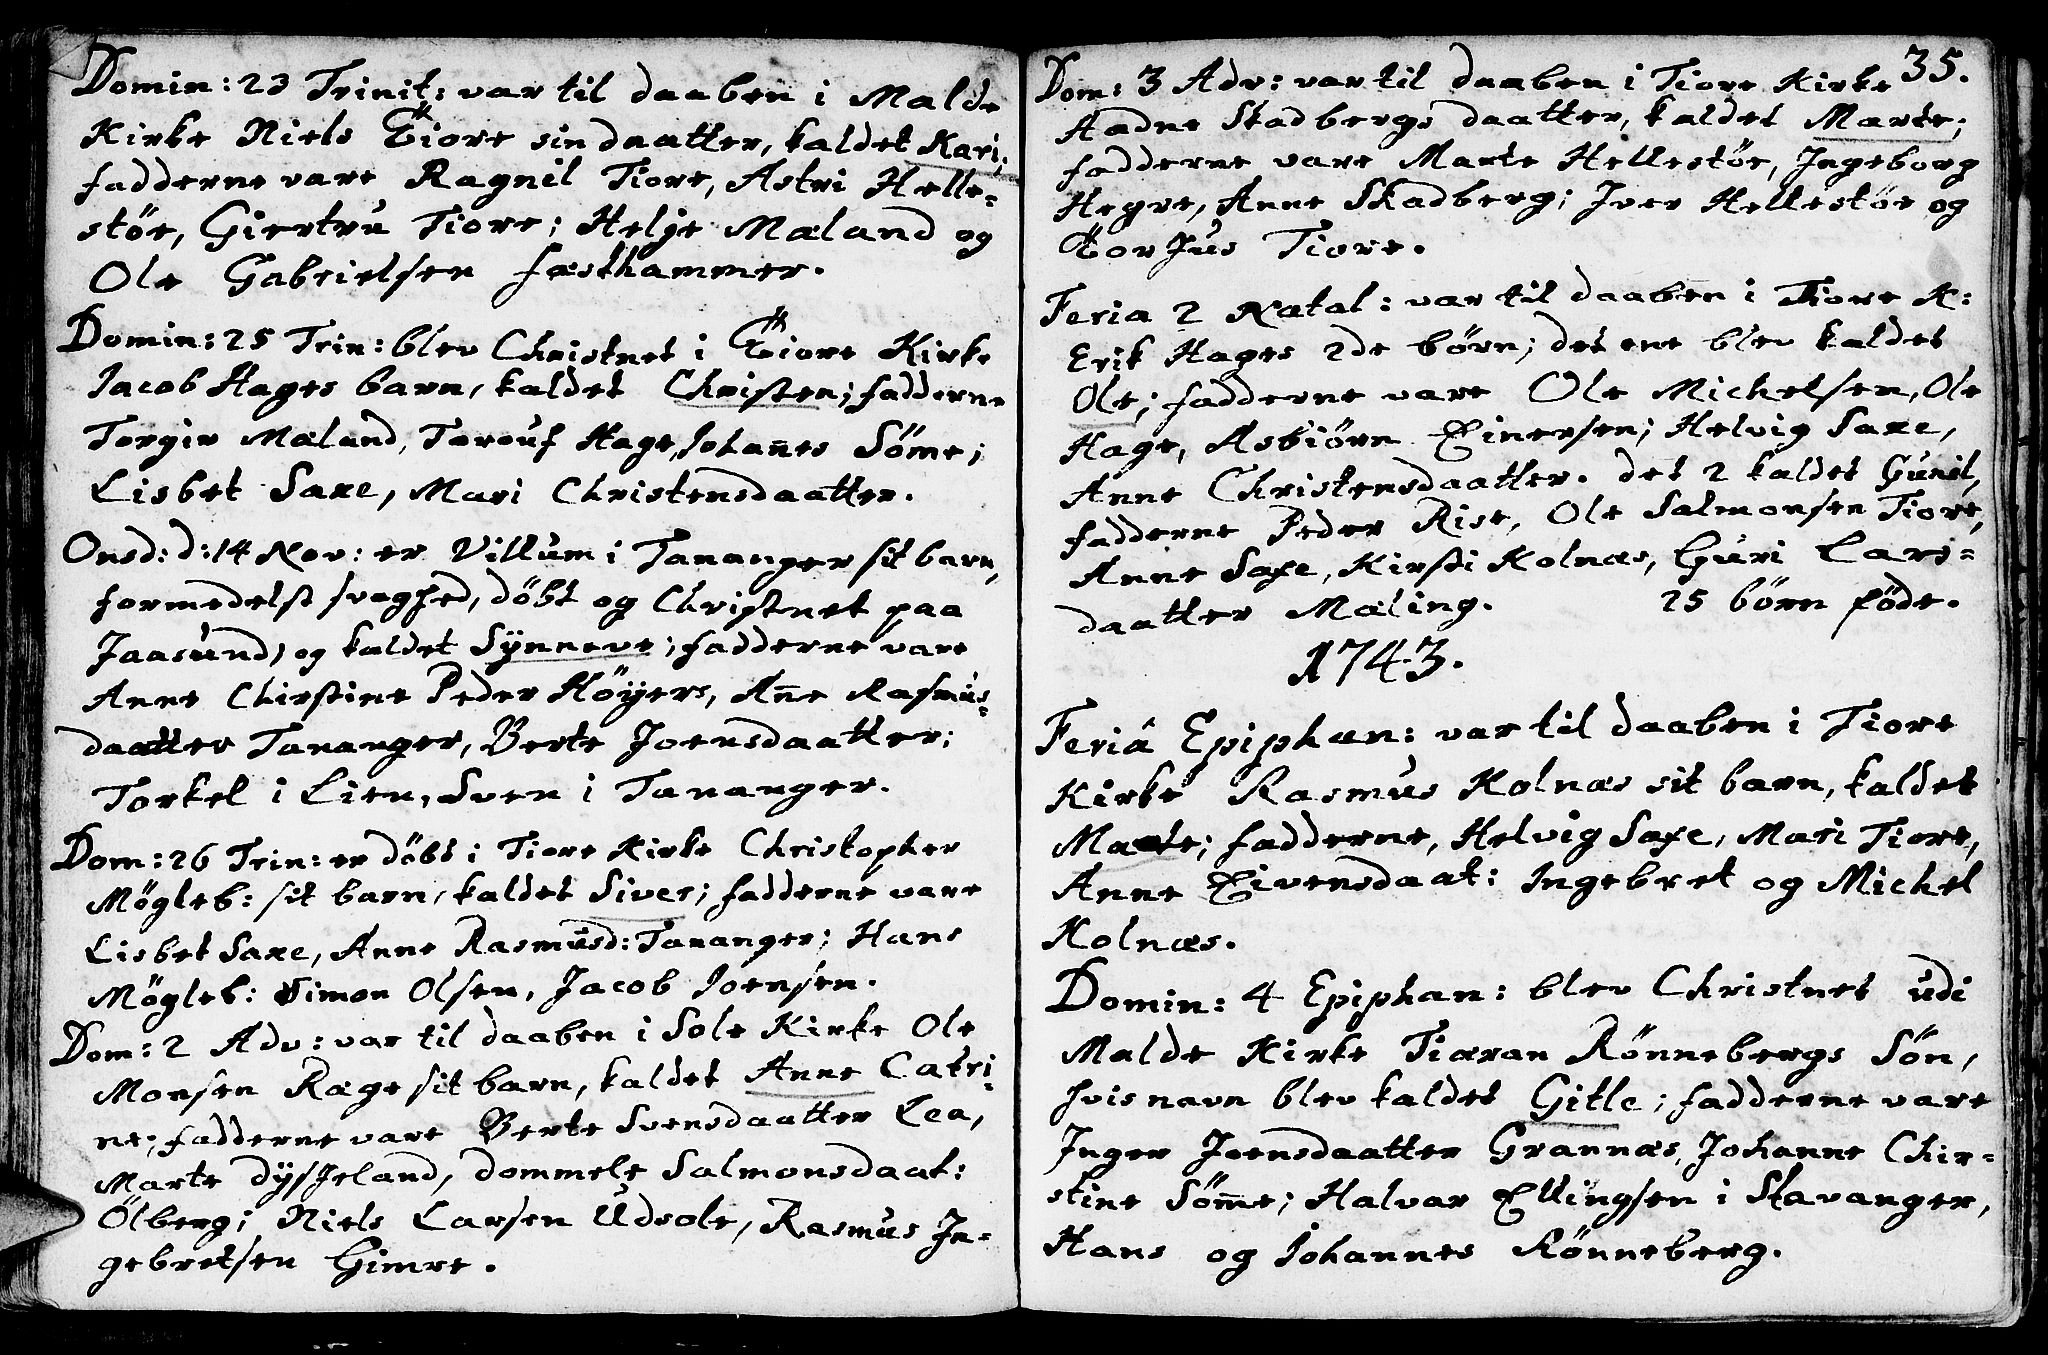 Domin: 23 Trinit: var til daaben i Malde
Kirke Niels Tiore sin daatter, kaldet Kari;
fadderne vare Ragnil Tiore, Astri Helle-
støe, Giertru Tiore; Helje Mæland og
Ole Gabrielsen fæsthammer.
Domin: 25 Trin: blev Christnet i Tiore Kirke
Jacob Hages barn, kaldet Christen; fadderne
Torgir Mæland, Torouf Hage, Johañes Söme;
Lisbet Saxe, Mari Christensdaatter.
Onsd: d: 14 Nov: er Villum i Tananger sit barn,
formedelst svaghed, döbt og Christnet paa
Jaasund, og kaldet Synneve; fadderne vare
Anne Chirstine Peder Höyers, Añe Rasmus-
daatter Tananger, Berte Joensdaatter;
Torkel i Lien, Sven i Tananger.
Dom: 26 Trin: er döbt i Tiore Kirke Christopher
Mögleb: sit barn, kaldet Siver; fadderne vare
Lisbet Saxe, Anne Rasmusd: Tananger; Hans
Mögleb: Simon Olsen, Jacob Joensen.
Dom: 2 Adv: var til daaben i Sole Kirke Ole
Monsen Ræge sit barn, kaldet Anne Catri-
ne; fadderne vare Berte Svensdaatter Lea,
Marte Dysjeland, Dommele Salmonsdaat:
Ölberg; Niels Larsen Udsole, Rasmus In-
gebretsen Gimre.
35.
Dom: 3 Adv: var til daaben i Tiore Kirke
Aadne Skadbergs daatter, kaldet Marte;
fadderne vare Marte Hellestöe, Ingeborg
Hegre, Anne Skadberg; Iver Hellestöe og
Torjus Tiore.
Feria 2 Natal: var til daaben i Tiore K:
Erik Hages 2de börn; det ene blev kaldet
Ole; fadderne vare Ole Michelsen, Ole
Hage, Asbiörn Einersen; Helvig Saxe,
Anne Christensdaatter. det 2 kaldet Gunil,
fadderne Peder Rise, Ole Salmonsen Tiore,
Anne Saxe, Kirsti Kolnæs, Guri Lars-
daatter Mæling. 25 börn föde.
1743.
Feriâ Epiphan: var til daaben i Tiore
Kirke Rasmus Kolnæs sit barn, kaldet
Marte; fadderne, Helvig Saxe, Mari Tiore,
Anne Eivensdaat: Ingebret og Michel
Kolnæs.
Domin: 4 Epiphan: blev Christnet udi
Malde Kirke Tiæran Rönnebergs Sön,
hvis navn blev kaldet Gitle; fadderne vare
Inger Joensdaatter Grannæs, Johanne Chir-
stine Söm̃e; Halvar Ellingsen i Stavanger,
Hans og Johannes Rönneberg.